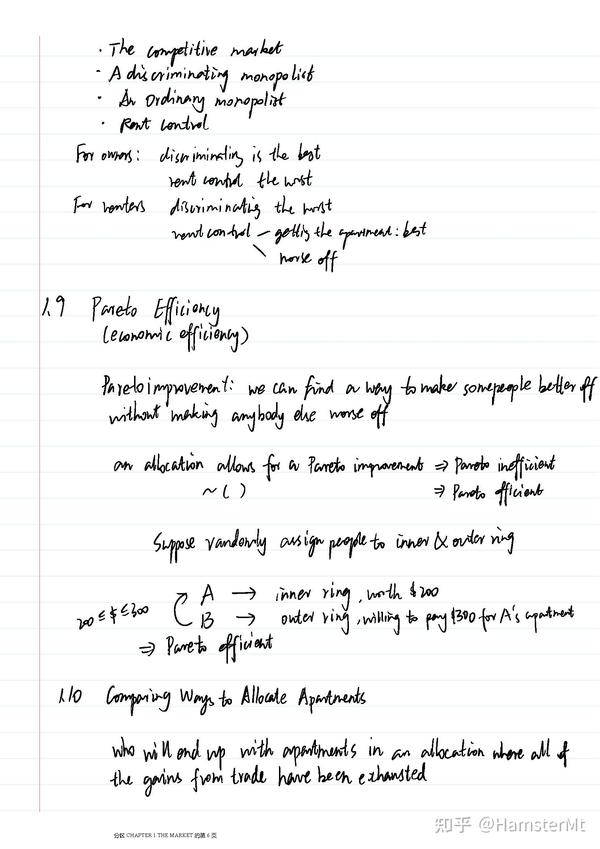 · The competitive market
· A discriminating monopolist
· An Ordinary monopolist
· Rent control
For owners: discriminating is the best
rent control the worst
For renters discriminating the worst
rent control — getting the apartment: best
\ worse off
1.9 Pareto Efficiency
(economic efficiency)
Pareto improvement: we can find a way to make some people better off
without making anybody else worse off
an allocation allows for a Pareto improvement ⇒ Pareto inefficient
~ ( ) ⇒ Pareto efficient
Suppose randomly assign people to inner & outer ring
200 ≤ $ ≤ 300
A → inner ring, worth $200
B → outer ring, willing to pay $300 for A's apartment
⇒ Pareto efficient
1.10 Comparing Ways to Allocate Apartments
who will end up with apartments in an allocation where all of
the gains from trade have been exhausted
分区 CHAPTER 1 THE MARKET 的第 6 页
知乎 @HamsterMt